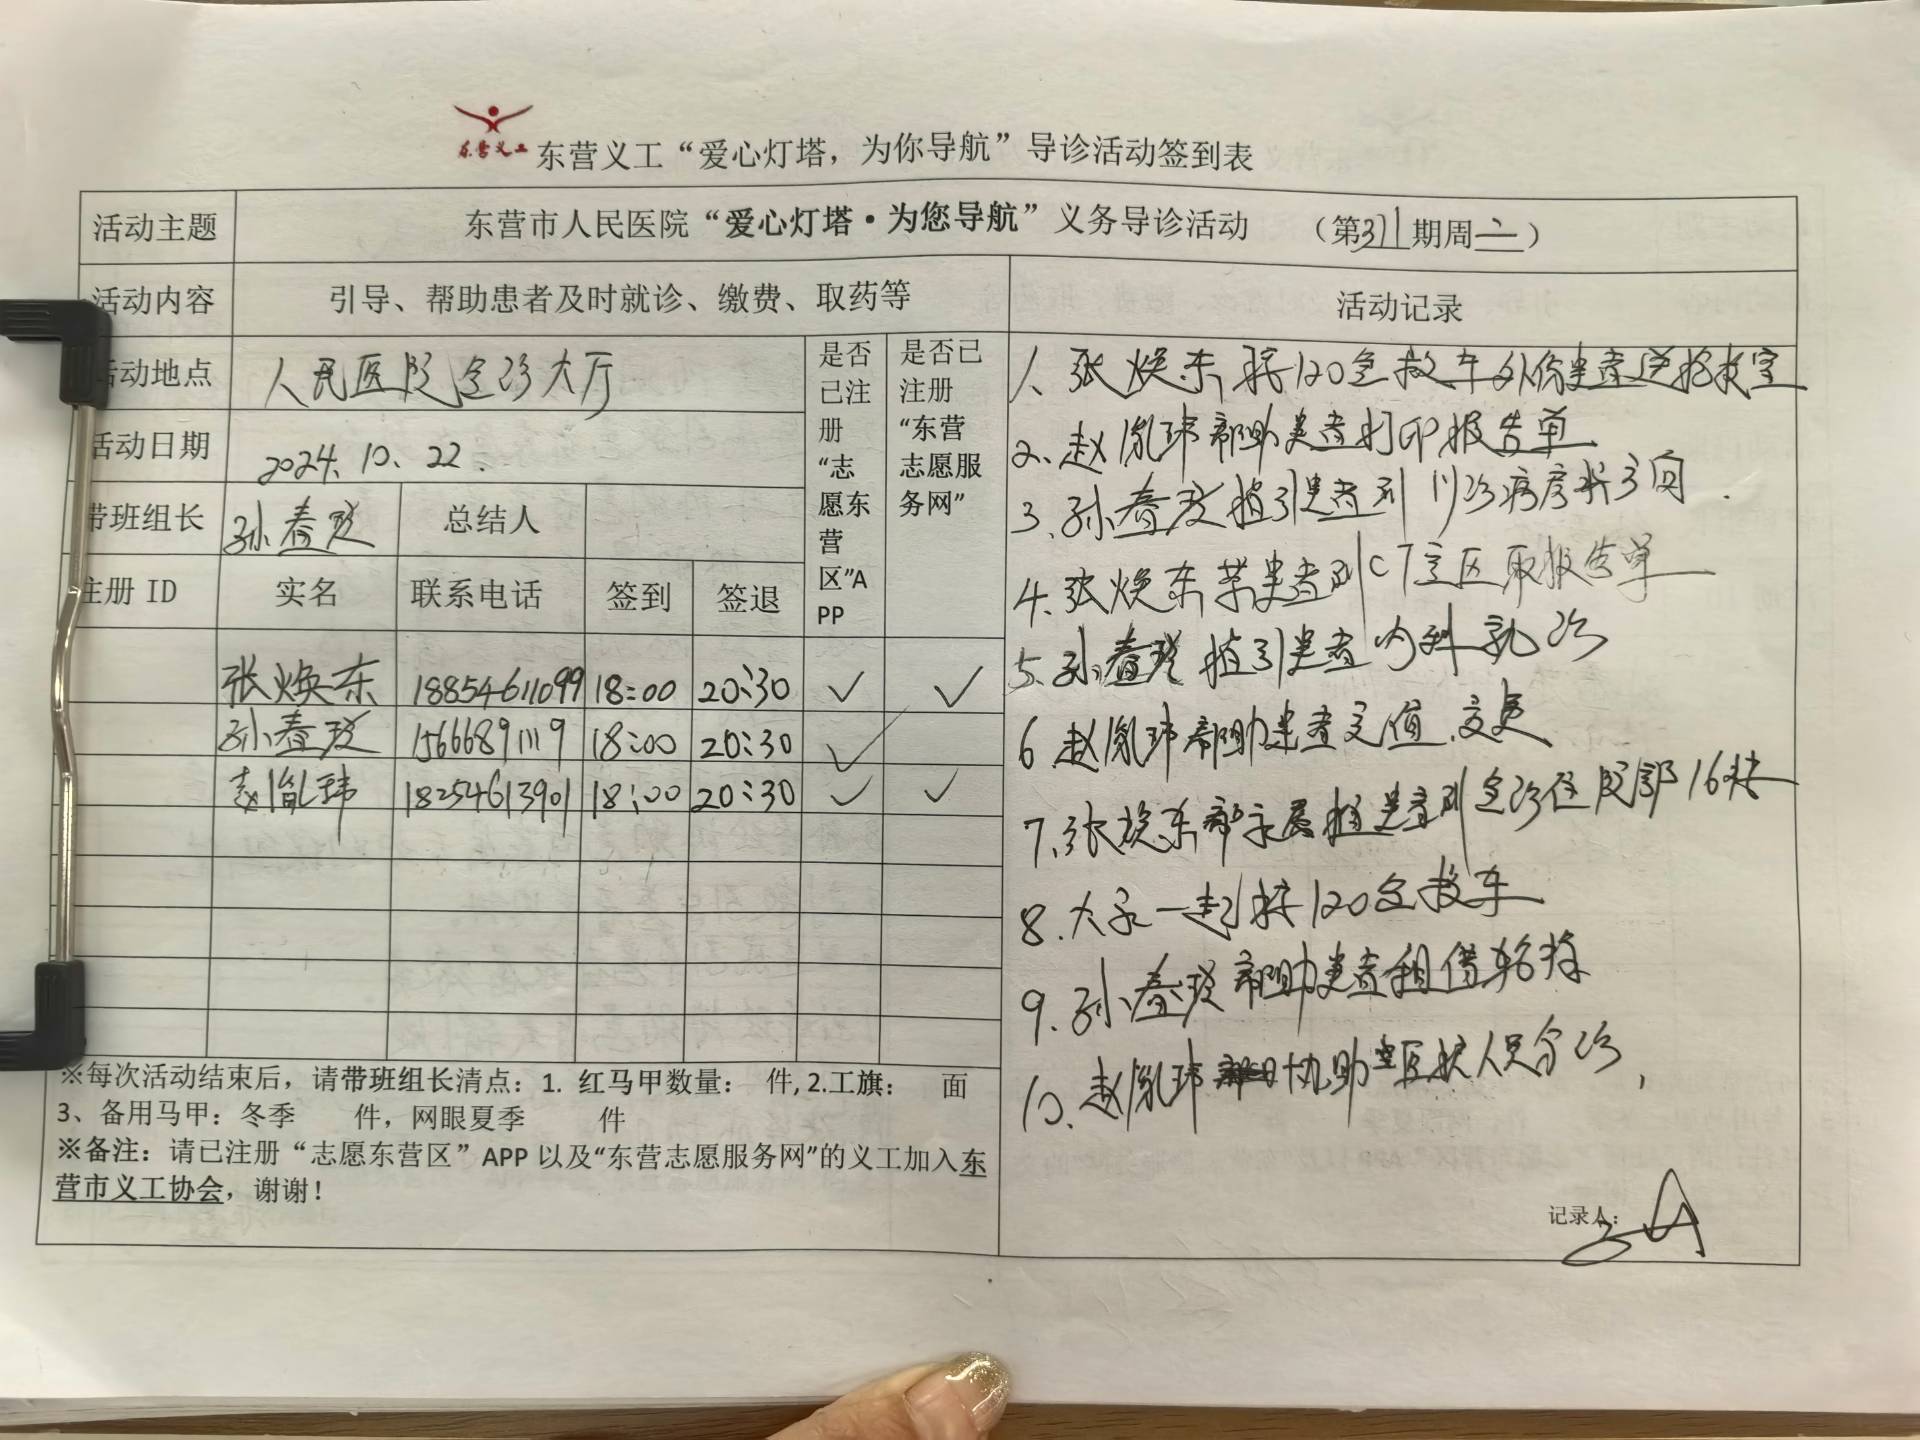 东营义工
东营义工“爱心灯塔，为你导航”导诊活动签到表
活动主题
东营市人民医院“爱心灯塔·为您导航”义务导诊活动 （第371期周二）
活动内容
引导、帮助患者及时就诊、缴费、取药等
活动记录
活动地点
人民医院急诊大厅
是否已注册“志愿东营区”APP
是否已注册“东营志愿服务网”
活动日期
2024.10.22.
带班组长
孙春玟
总结人
注册 ID 实名 联系电话 签到 签退
张焕东 18854611099 18:00 20:30 ✓ ✓
孙春玟 15666891119 18:00 20:30 ✓
赵胤玮 18254613901 18:00 20:30 ✓ ✓
1、张焕东接120急救车外伤患者送抢救室
2、赵胤玮帮助患者打印报告单
3、孙春玟指引患者到门诊病房楼方向.
4、张焕东带患者到CT室区取报告单
5、孙春玟指引患者内科就诊
6 赵胤玮帮助患者充值、交费
7、张焕东帮家属推患者到急诊住院部16楼
8、大家一起接120急救车
9、孙春玟帮助患者租借轮椅
10、赵胤玮协助医护人员分诊,
※每次活动结束后，请带班组长清点：1. 红马甲数量： 件, 2.工旗： 面
3、备用马甲：冬季 件，网眼夏季 件
※备注：请已注册“志愿东营区”APP 以及“东营志愿服务网”的义工加入东
营市义工协会，谢谢！
记录人：